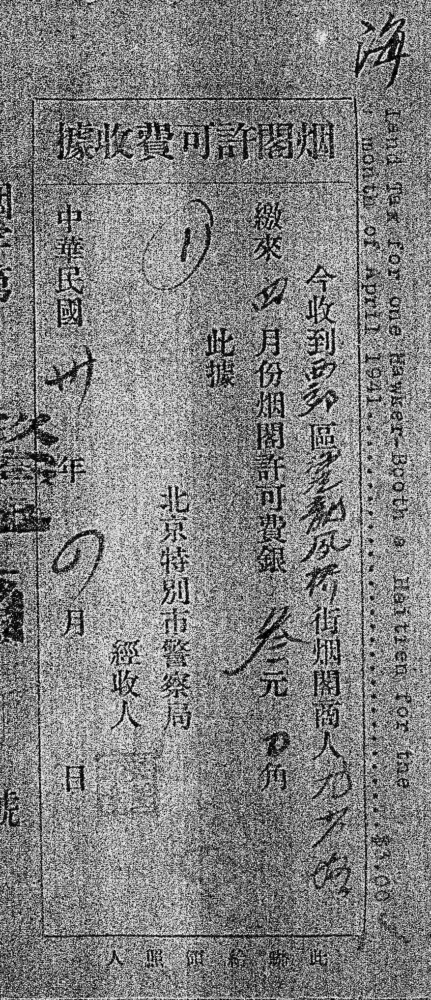 海
Land Tax for one Hawker-Booth a Haitien for the
month of April 1941.................$3.00
烟閣許可費收據
今收到西郊區街烟閣商人
繳來四月份烟閣許可費銀叁元0角
此據
北京特別市警察局
經收人
中華民國卅年四月 日
號
此聯給領照人